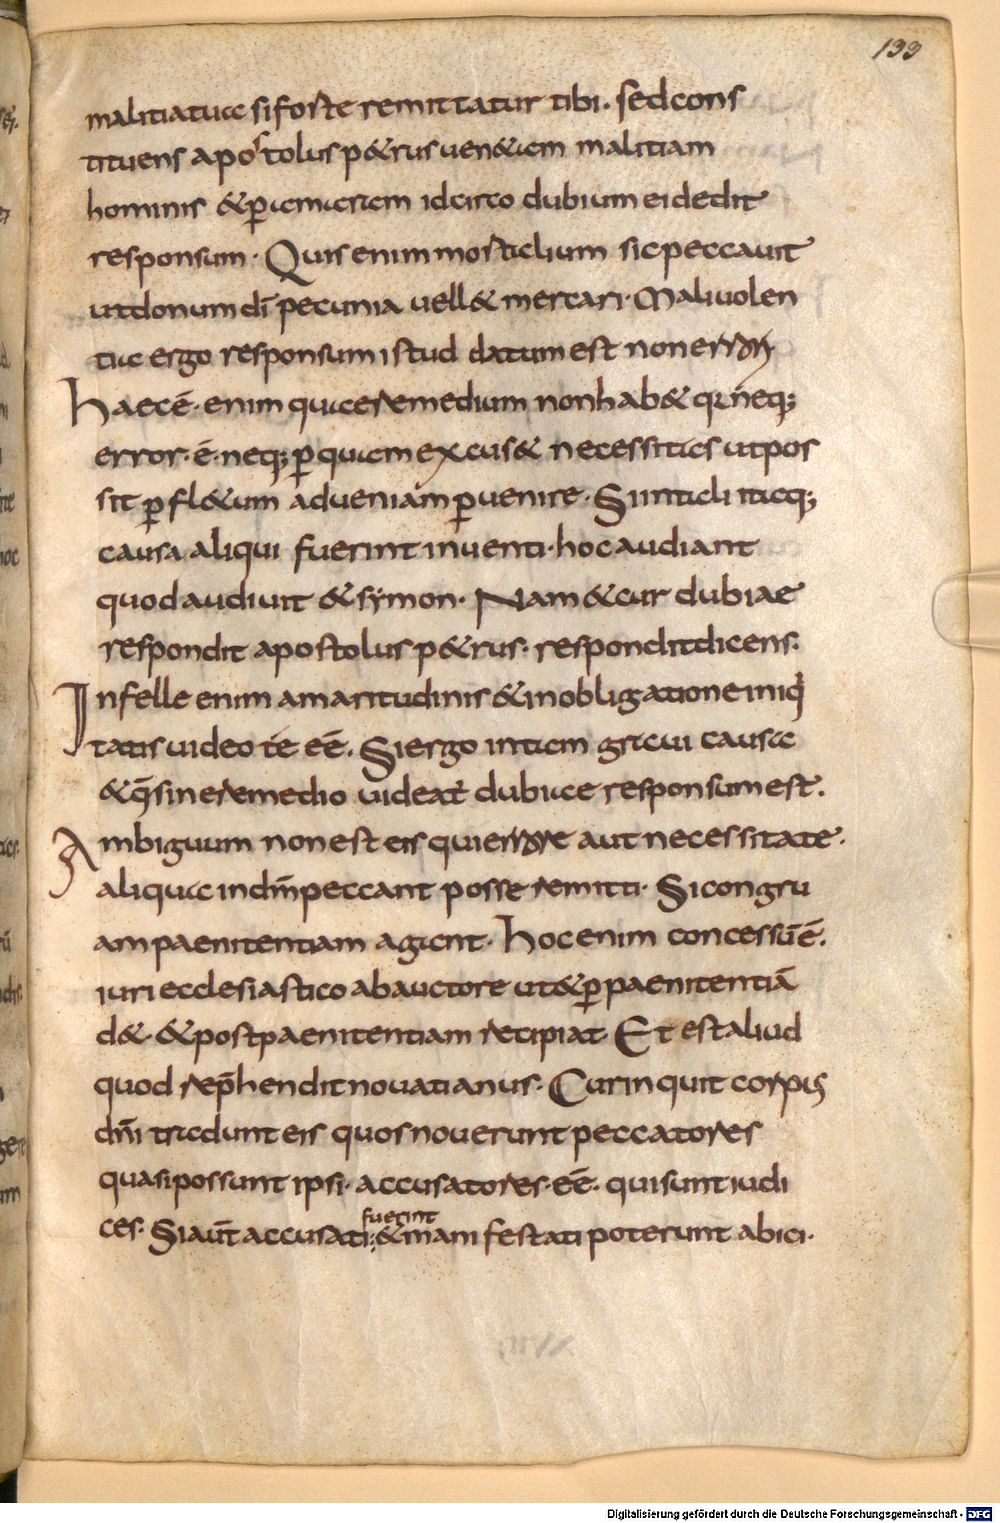 133
malitia tua si forte remittatur tibi. sed cons
tituens apostolus p&rus uen&am malitiam
hominis & ꝑamaram idcirco dubium ei dedit
responsum. Quis enim mortalium sic peccauit
ut donum dī pecunia uell& mercari. Maliuolen
tiae ergo responsum istud datum est non errori
haec ē. enim quae remedium non hab& qr̄ neq;
error. ē. neq; ꝑ quam excus& necessitas ut pos
sit ꝑ fl&um ad ueniam ꝑuenire. Si in tali itaq;
causa aliqui fuerint inuenti. hoc audiant
quod audiuit & symon. Nam & cur dubiae
respondit apostolus p&rus. respondit dicens.
In felle enim amaritudinis & in obligatione iniq
tatis uideo té eē. Si ergo in tam graui causa
& q̄ sine remedio uideat̄ dubiae responsum est.
Ambiguum non est eis qui errore aut necessitate.
aliqua in dn̄m peccant posse remitti. Si congru
am paenitentiam agant. hoc enim concessū ē.
iuri ecclesiastico ab auctore ut & ꝑ paenitentiā
d&. & post paenitentiam recipiat. Et est aliud
quod rep̄hendit nouatianus. Cur inquit corpus
dn̄i tradunt eis quos nouerunt peccatores
quasi possunt ipsi. accusatores. eē. qui sunt iudi
fuerint
ces. Si aūt accusati: & manifestati poterunt abici.
Digitalisierung gefördert durch die Deutsche Forschungsgemeinschaft - DFG